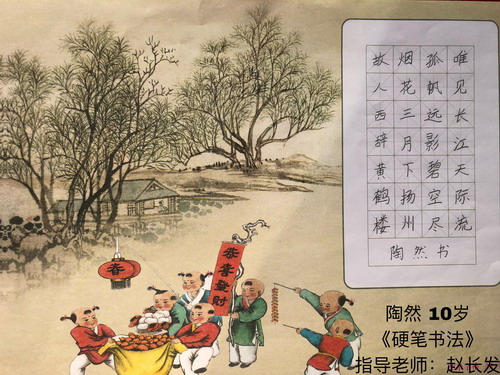 故人西辞黄鹤楼
烟花三月下扬州
孤帆远影碧空尽
唯见长江天际流
陶然书
春
恭喜發財
陶然 10岁
《硬笔书法》
指导老师：赵长发